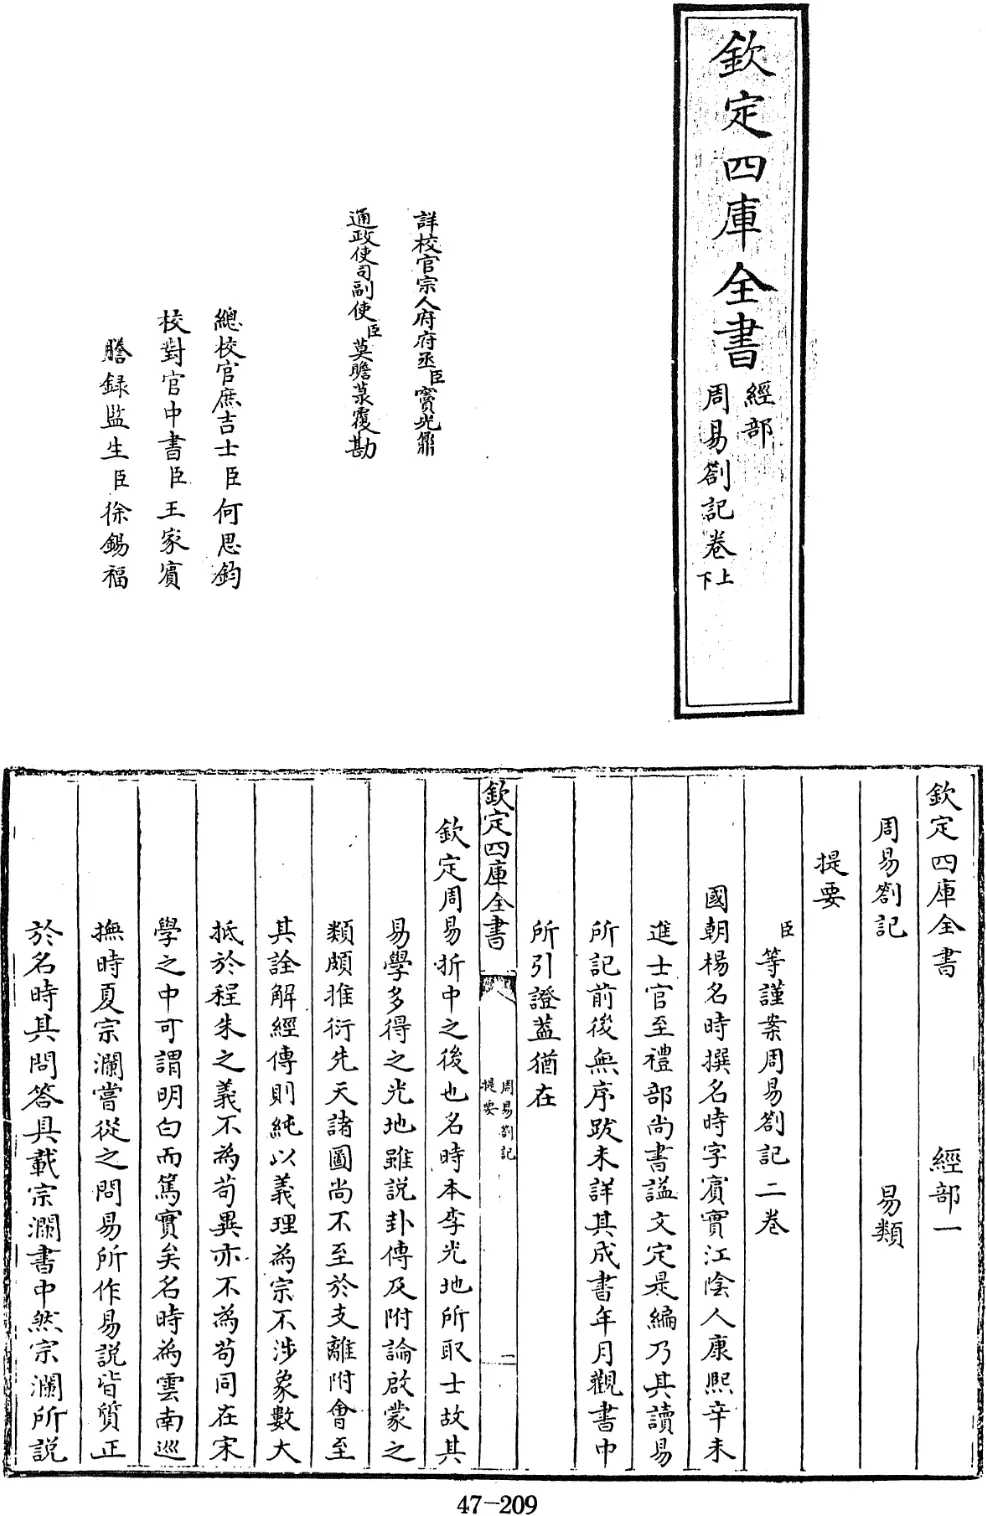 欽定四庫全書
經部
周易劄記卷上下
詳校官宗人府府丞臣竇光鼐
通政使司副使臣莫瞻菉覆勘
總校官庶吉士臣何思鈞
校對官中書臣王家賓
謄録監生臣徐錫福
欽定四庫全書 經部一
周易劄記 易類
提要
臣等謹案周易劄記二卷
國朝楊名時撰名時字賓實江陰人康熙辛未
進士官至禮部尚書諡文定是編乃其讀易
所記前後無序跋未詳其成書年月觀書中
所引證蓋猶在
欽定四庫全書 周易劄記 提要 一
欽定周易折中之後也名時本李光地所取士故其
易學多得之光地雖説卦傳及附論啟蒙之
類頗推衍先天諸圖尚不至於支離附會至
其詮解經傳則純以義理為宗不涉象數大
抵於程朱之義不為苟異亦不為苟同在宋
學之中可謂明白而篤實矣名時為雲南巡
撫時夏宗瀾嘗從之問易所作易説皆質正
於名時其問答具載宗瀾書中然宗瀾所説
47-209